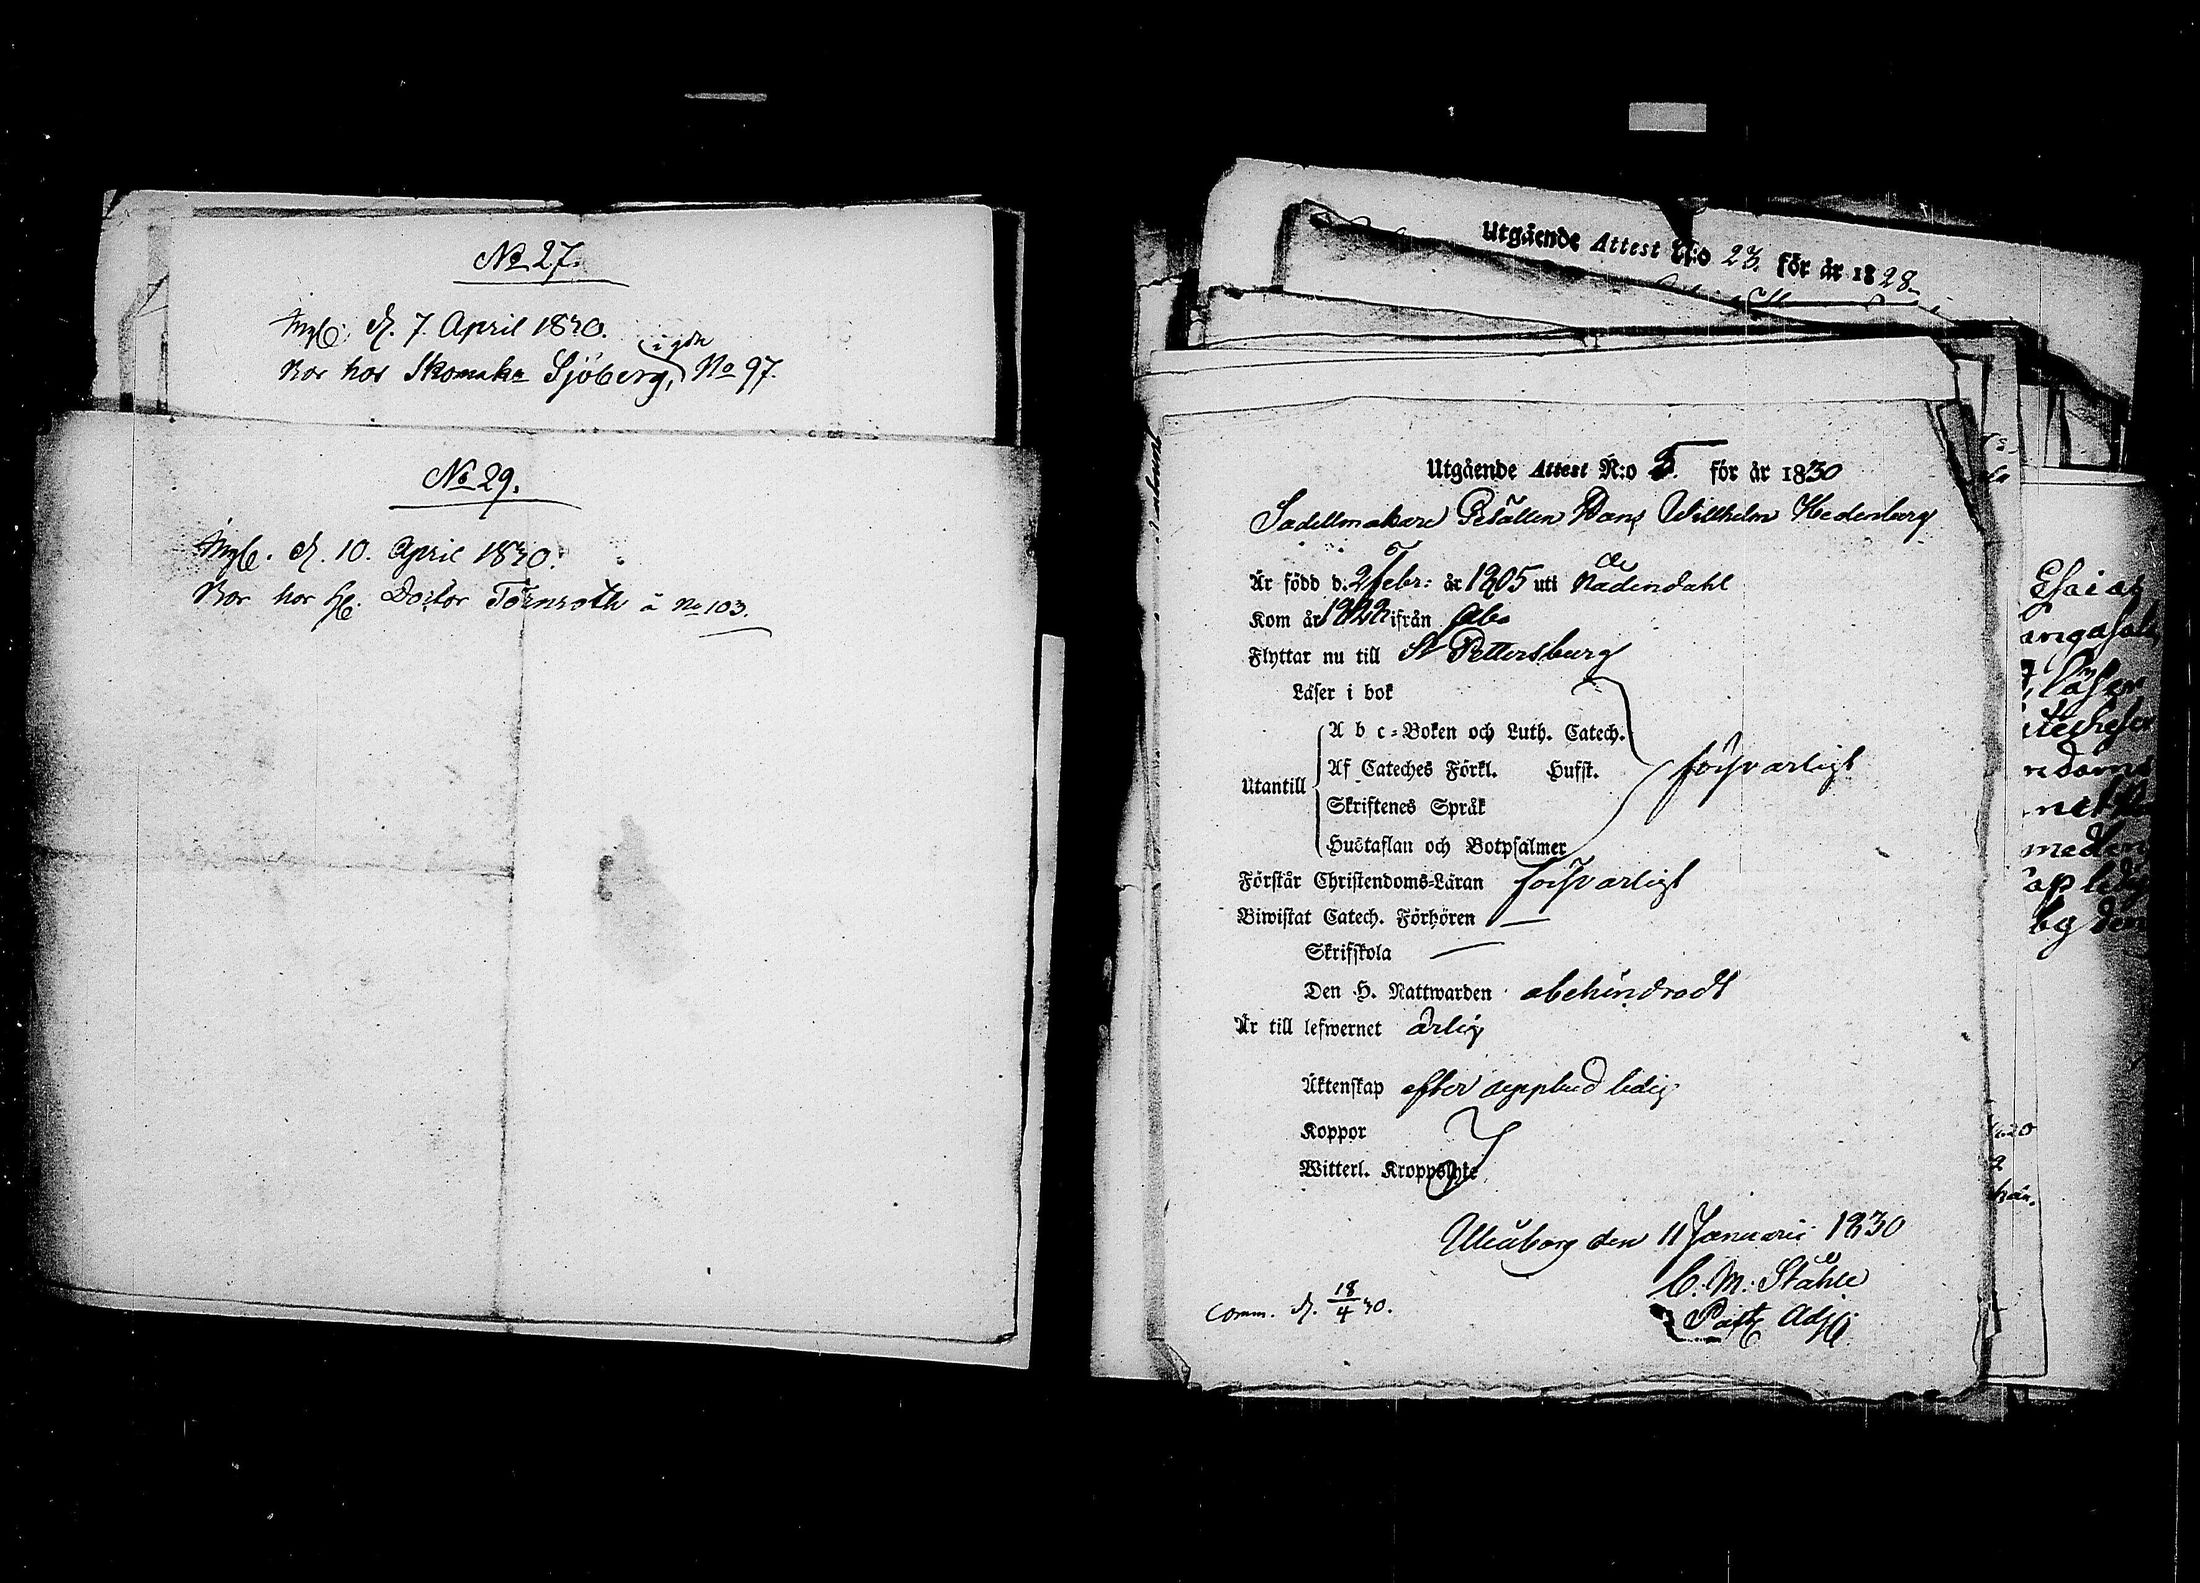 No 27.
Ingl: d. 7. April 1830.
i gdn
Bor hos Skomaka Sjöberg, No 97.
No 29.
Ingl. d. 10. April 1830.
Bor hos H. Doctor Törnroth à No 103.
Utgående Attest N:o 23. för år 1828
Utgående Attest N:o 5. för år 1830
Sadellmakare Gesällen Hans Willhelm Hedenberg
Är född d. 2 Febr: år 1805 uti Nådendahl
Kom år 1828 ifrån Åbo
Flyttar nu till St Pettersburg
Läser i bok
A b c-Boken och Luth. Catech.
Af Cateches Förkl. Husst.
försvarligt
Utantill
Skriftenes Språk
Hustaflan och Botpsalmer
Förstår Christendoms-Läran försvarligt
Biwistat Catech. Förhören —
Skrifskola —
Den H. Nattwarden obehindradt
Är till lefwernet ärlig
Äktenskap efter uppbud ledig
Koppor
Witterl. Kroppslyte
Uleåborg den 11 Januarii 1830
C. M. Ståhle
Past. Adj.
Comm. d. 18/4 30.
Esaias
läser